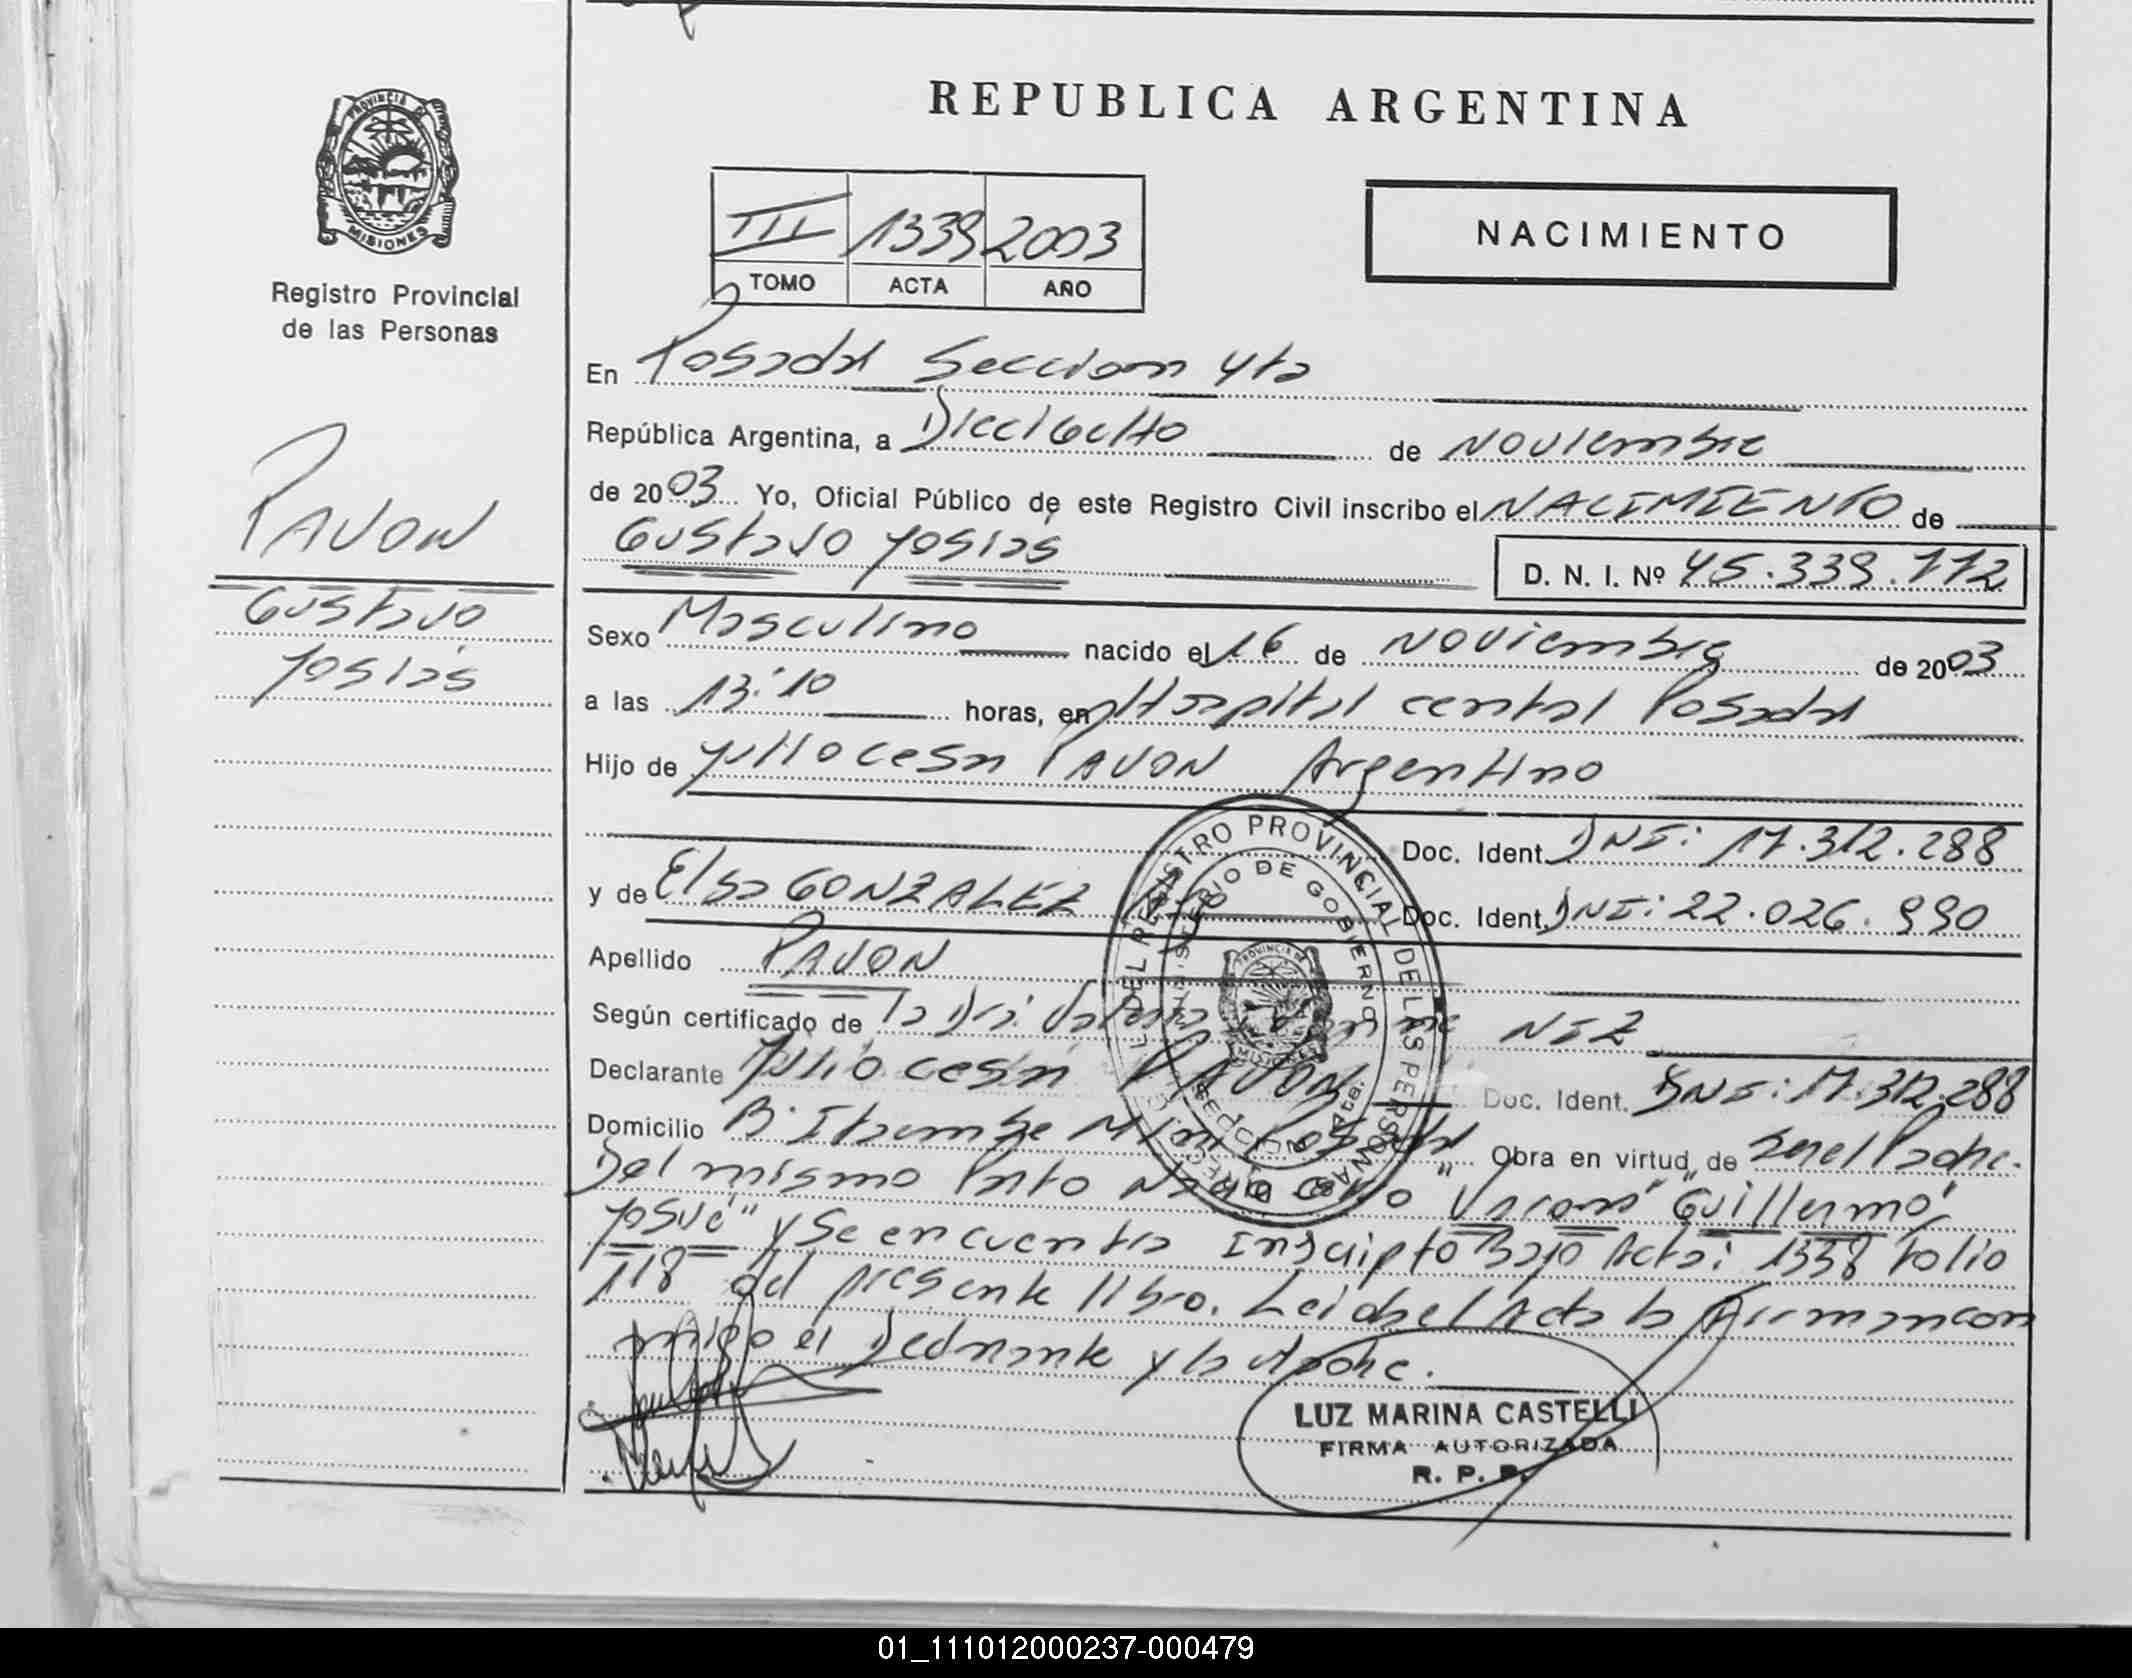 REPUBLICA ARGENTINA
PROVINCIA DE
MISIONES
Registro Provincial
de las Personas
III 1339 2003
TOMO ACTA AÑO
NACIMIENTO
PAVON
Gustavo
Yosias
En Posadas Seccion 4ta
República Argentina, a Dieciocho de Noviembre
de 2003 Yo, Oficial Público de este Registro Civil inscribo el NACIMIENTO de
Gustavo Yosias D. N. I. Nº 45.339.772
Sexo Masculino nacido el 16 de Noviembre de 2003
a las 13:10 horas, en Hospital central Posadas
Hijo de Julio Cesar PAVON Argentino
Doc. Ident. DNI: 17.312.288
y de Elsa GONZALEZ Doc. Ident. DNI: 22.026.990
Apellido PAVON
Según certificado de la Dra. NIZ
Declarante Julio Cesar PAVON Doc. Ident. DNI: 17.312.288
Domicilio B° Itaembe Mini Posadas Obra en virtud de Ser el Padre.
Del mismo Parto Nacio otro "Varon" "Guillermo
Yosué" y Se encuentra Inscripto Bajo Acta: 1338 folio
118 del presente libro. Leida el Acta la Firman con
migo el Declarante y la Madre.
DIRECC. GRAL. DEL REGISTRO PROVINCIAL DE LAS PERSONAS
MINISTERIO DE GOBIERNO
SECCION 4ta.
PROVINCIA DE
MISIONES
LUZ MARINA CASTELLI
FIRMA AUTORIZADA
R. P. P.
01_111012000237-000479